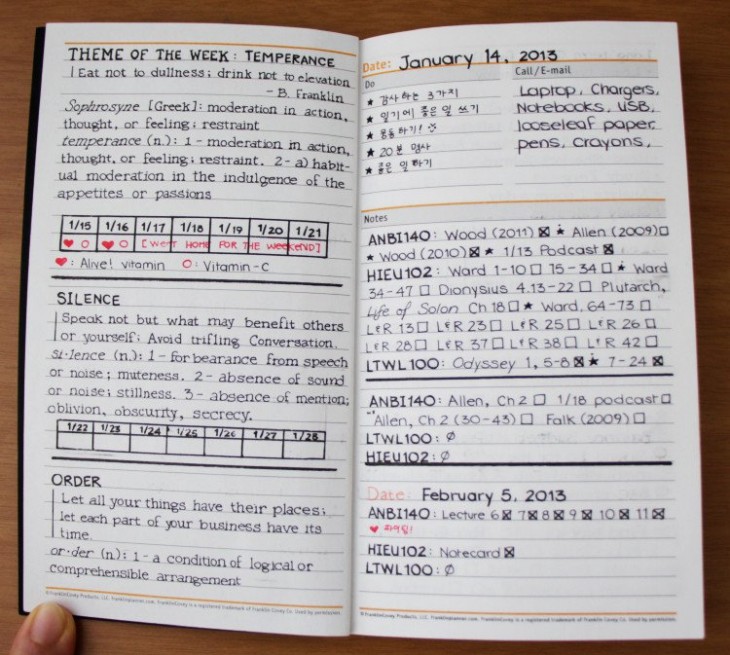 THEME OF THE WEEK: TEMPERANCE
Eat not to dullness; drink not to elevation
- B. Franklin
Sophrosyne [Greek]: moderation in action,
thought, or feeling; restraint
temperance (n.): 1 - moderation in action,
thought, or feeling; restraint. 2 - a) habit-
ual moderation in the indulgence of the
appetites or passions
1/15 1/16 1/17 1/18 1/19 1/20 1/21
♥ O ♥ O [WENT HOME FOR THE WEEKEND]
♥: Alive! vitamin O: Vitamin-C
SILENCE
Speak not but what may benefit others
or yourself; Avoid trifling Conversation.
si·lence (n.): 1 - forbearance from speech
or noise; muteness. 2 - absence of sound
or noise; stillness. 3 - absence of mention;
oblivion, obscurity, secrecy.
1/22 1/23 1/24 1/25 1/26 1/27 1/28
ORDER
Let all your things have their places;
let each part of your business have its
time.
or·der (n): 1 - a condition of logical or
comprehensible arrangement
© FranklinCovey Products, LLC. Franklinplanner.com. FranklinCovey is a registered trademark of Franklin Covey Co. Used by permission.
Date: January 14, 2013
Do
★ 감사하는 3가지
★ 일기에 좋은 일 쓰기
★ 운동하기!
★ 20분 명상
★ 좋은 일 하기
Call/E-mail
Laptop, Chargers,
Notebooks, USB,
looseleaf paper,
pens, crayons,
Notes
ANBI140: Wood (2011) ☒ ★ Allen (2009) ☐
★ Wood (2010) ☒ ★ 1/13 Podcast ☒
HIEU102: Ward 1-10 ☐ 15-34 ☐ ★ Ward
34-47 ☐ Dionysius 4.13-22 ☐ Plutarch,
Life of Solon Ch 18 ☐ ★ Ward, 64-73 ☐
L&R 13 ☐ L&R 23 ☐ L&R 25 ☐ L&R 26 ☐
L&R 28 ☐ L&R 37 ☐ L&R 38 ☐ L&R 42 ☐
LTWL100: Odyssey 1, 5-8 ☒ ★ 7-24 ☒
ANBI140: Allen, Ch 2 ☐ 1/18 podcast ☐
Allen, Ch 2 (30-43) ☐ Falk (2009) ☐
LTWL100: ∅
HIEU102: ∅
Date: February 5, 2013
ANBI140: Lecture 6 ☒ 7 ☒ 8 ☒ 9 ☒ 10 ☒ 11 ☒
HIEU102: Notecard ☒
LTWL100: ∅
© FranklinCovey Products, LLC. Franklinplanner.com. FranklinCovey is a registered trademark of Franklin Covey Co. Used by permission.